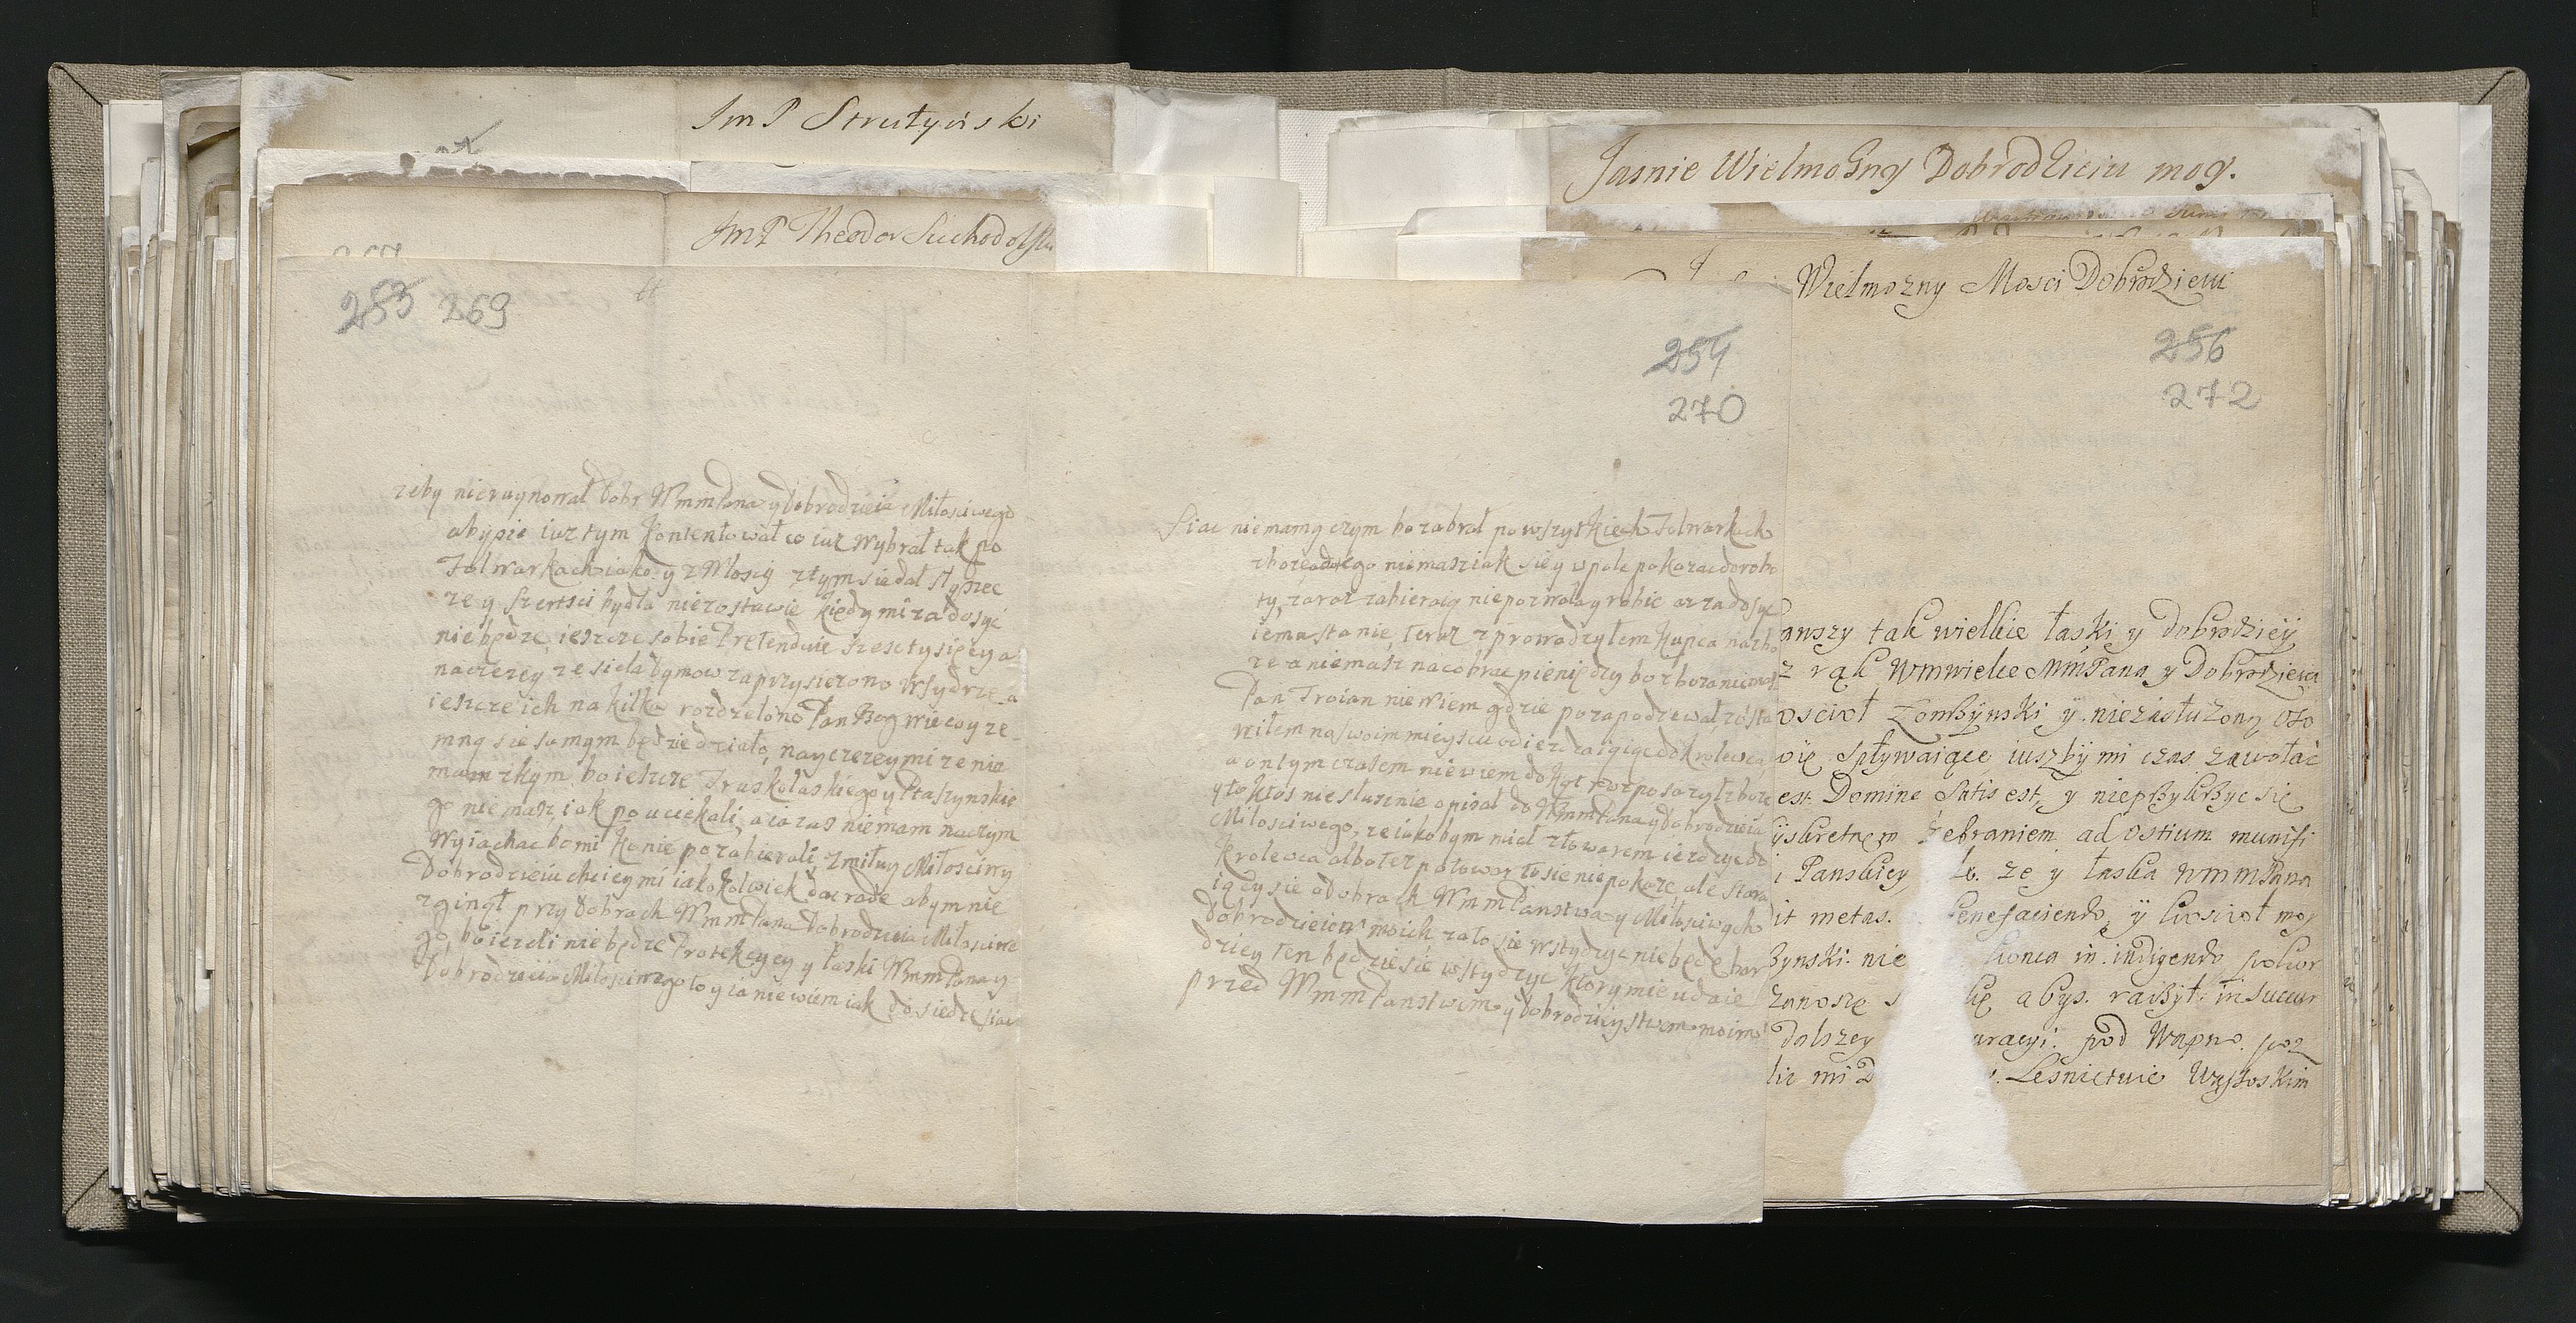 Jmſ Strutyński
JmP Theodor Suchodolski
283 269
zeby nierugnował Dobr WmmPana y Dobrodzieia Miłosciwego
abysie iuz tym kontentował co iuz wybrał tak po
Folwarkach iako y z Włosci ztym sie dał słyszec
ze y szersci bydła niezostawie kiedy mi za dosyć
niebędze, ieszcze sobie Pretenduie szesc tysięcy a
naczerey ze siela dymow zaprzysiezono Wsydrze a
ieszcze ich na kilka rozdzelono Pan Bog wie co y ze
mną sie samym będzie działo, nayczerey mi ze nie
mam zkym bo ieszcze Truskolaskiego y Ptaszynskie
go niemasz, iak pouciekali, a ia zas niemam naczym
Wyiachac bo mi konie pozabierali, zmiłuy Miłosciwy
Dobrodzieiu chciey mi iakozkolwiek dac rade abym nie
zginął przy Dobrach WmmPana Dobrodzieia Miłosciwe
go, bo iezeli niebędze Protekcyey y łaski WmmPana y
Dobrodzieia Miłosciwego to y ia niewiem iak do siedze siac
254
270
Siac niemamy czym bo zabrał po wszystkiech Folwarkach
zboze adoego niemasz iak sie y wpole pokazac do robo
ty, zaraz zabieraią nie pozwalay robic az za dosyc
iemu stanie, teraz zprowadzyłem kupca na zbo
ze a niemasz na co brac pieniędzy bo zboza nie masz
Pan Troian niewiem gdzie pozapodzewał, zosta
wiłem na swoim mieyscu odiezdzaiąc do krolewca
a on tym czasem niewiem dokąt rozposazył zboze
y to ktos nieslusznie opisał do WmmPana y Dobrodzieia
Miłosciwego, ze iakobym miał z towarem iezdzyc do
Krolewca albo tez połowa to sie niepokaze, ale stara
iąc sie o Dobrach WmmPanstwa y Miłosciwych
Dobrodzieiow moich za to sie wstydzyc niebęde bar
dziey ten będzie sie wstydzyc ktory mie udaie
przed WmmPanstwem y Dobrodzieystwem moim
Jasnie WielmoZny DobrodZieiu moy.
Wielmozny Mosci Dobrodzieiu
256
272
awszy tak wielkie łaski y dobrodzieÿ
z rąk Wmwielce MmPana y Dobrodzieia
oscioł Zombÿnski ÿ niezasłuzony Oto
wię spływaiące iuszbÿ mi czas zawołać
est Domine Satis est, y nieprzykrzyc się
ÿskretnem Żebraniem ad ostium munifi
i Panskiey ze y łaska WmmPana
it metas. benefaciendo, ÿ koscioł moy
zynski nie konca in indigendo pokor
zanoszę abys. raczÿł in succur
dalszey uracyi. pod Wapno. poz
lic mi Lesnictwie Węsłoskim